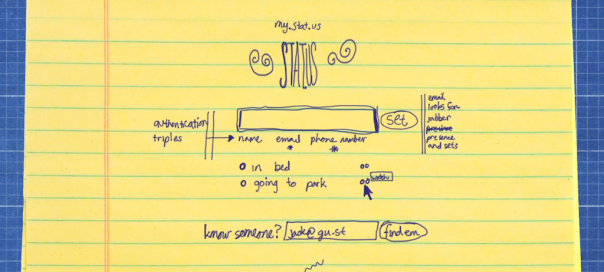 my.stat.us
STATUS
set
authentication
triples
name email phone number
* #
email
looks for
jabber
presence
and sets
in bed
going to park
watch
know someone? jack@gu.st find em